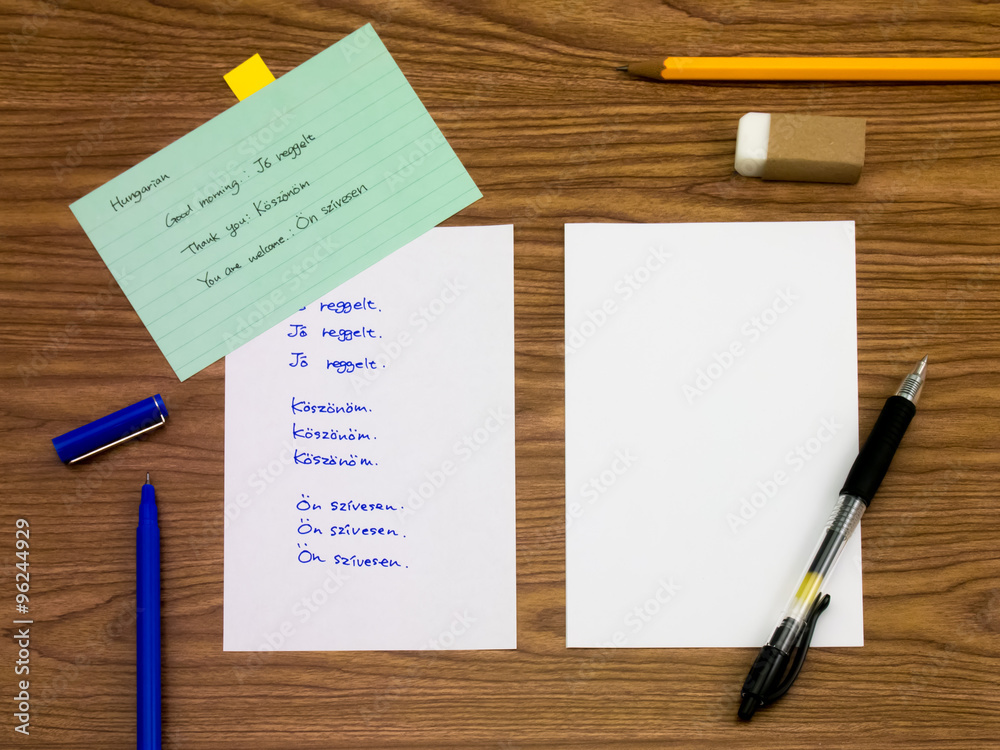 Hungarian
Good morning.: Jó reggelt
Thank you: Köszönöm
You are welcome.: Ön szívesen
reggelt.
Jó reggelt.
Jó reggelt.
Köszönöm.
Köszönöm.
Köszönöm.
Ön szívesen.
Ön szívesen.
Ön szívesen.
Adobe Stock | #96244929